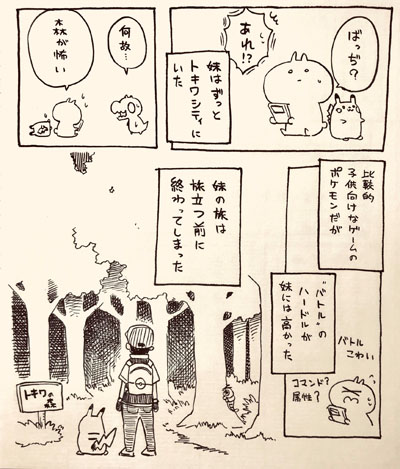 ばっぢ?
あれ!?
妹はずっと
トキワシティに
いた
何故…
森が怖い
比較的
子供向けなゲームの
ポケモンだが
"バトル"の
ハードルが
妹には高かった
バトル
こわい
コマンド?
属性?
妹の旅は
旅立つ前に
終わってしまった
トキワの
森